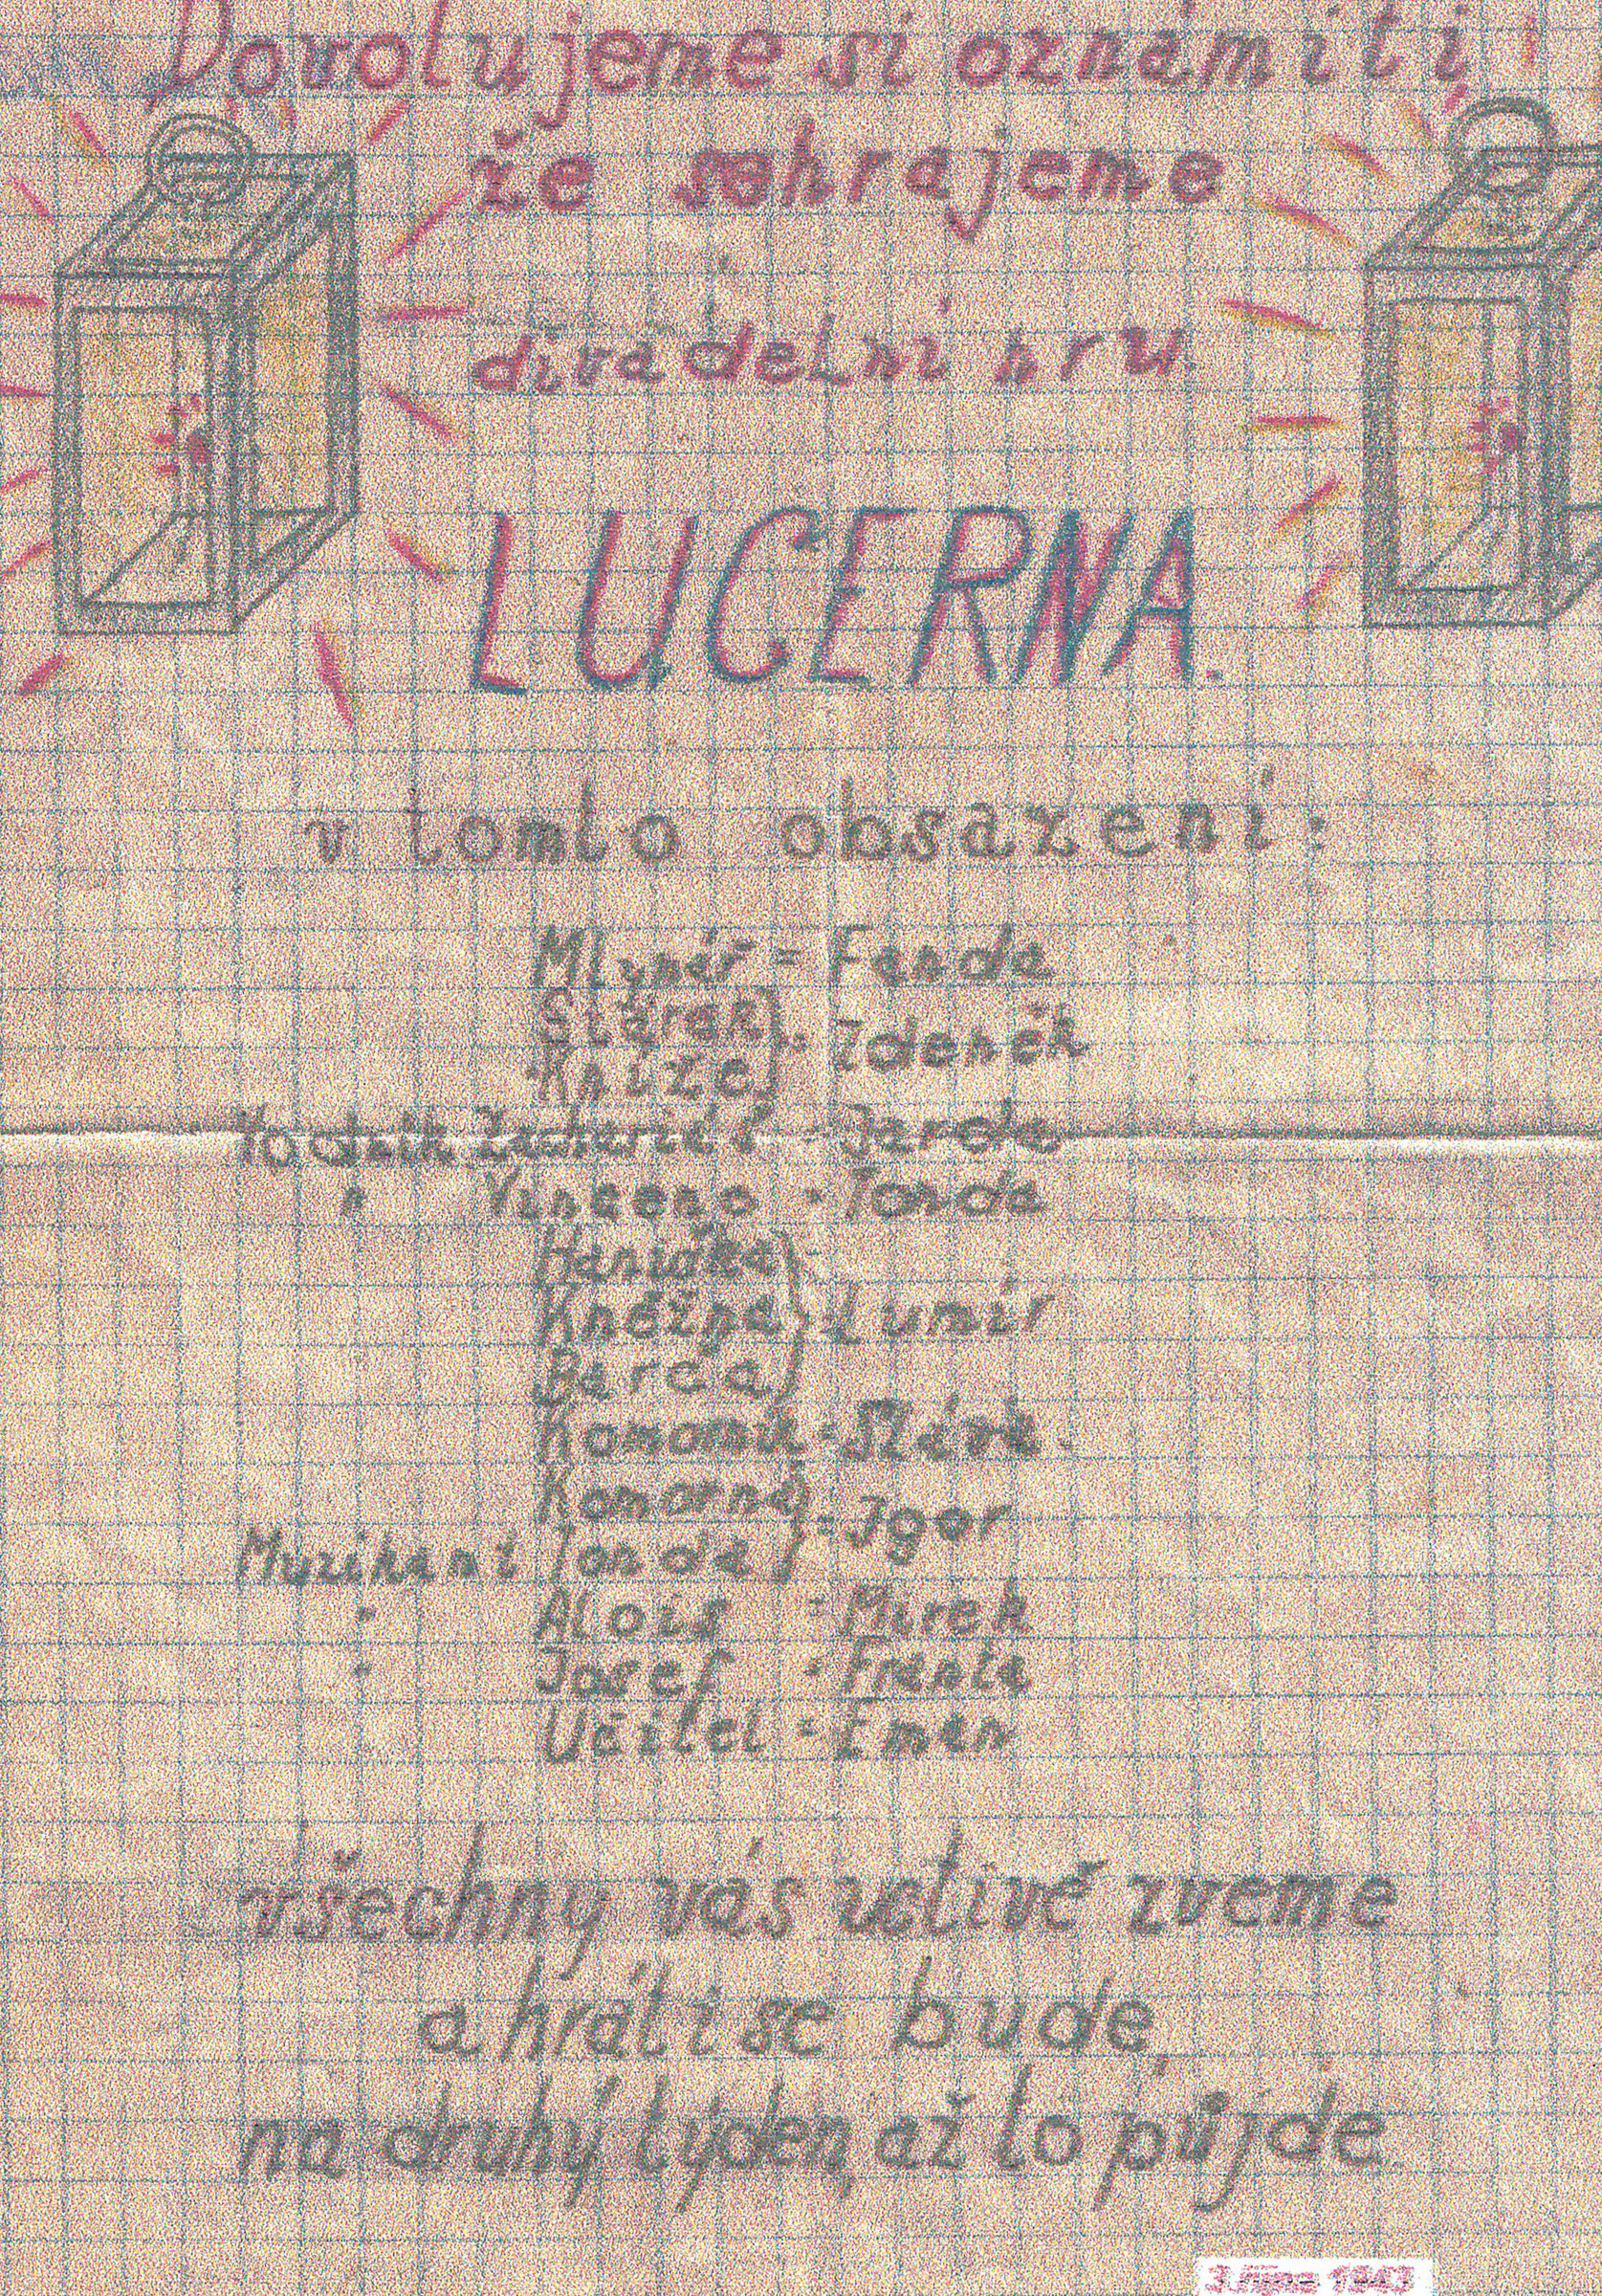 Dovolujeme si oznámiti
že sehrajeme
divadelní hru
LUCERNA.
v tomto obsazení:
Mlynář = Fanda
Stárek
Kníže } = Zdeněk
Vodník Zachariáš = Jarda
" Vincenc = Tonda
Hanička
Kněžna } = Lumír
Barča
Komorník = Slávk.
Komorná
Muzikant Tonda } = Igor
" Alois = Mirek
" Josef = Franta
Učitel = Eman
všechny vás uctivě zveme
a hráti se bude,
na druhý týden, až to půjde.
3. října 1943